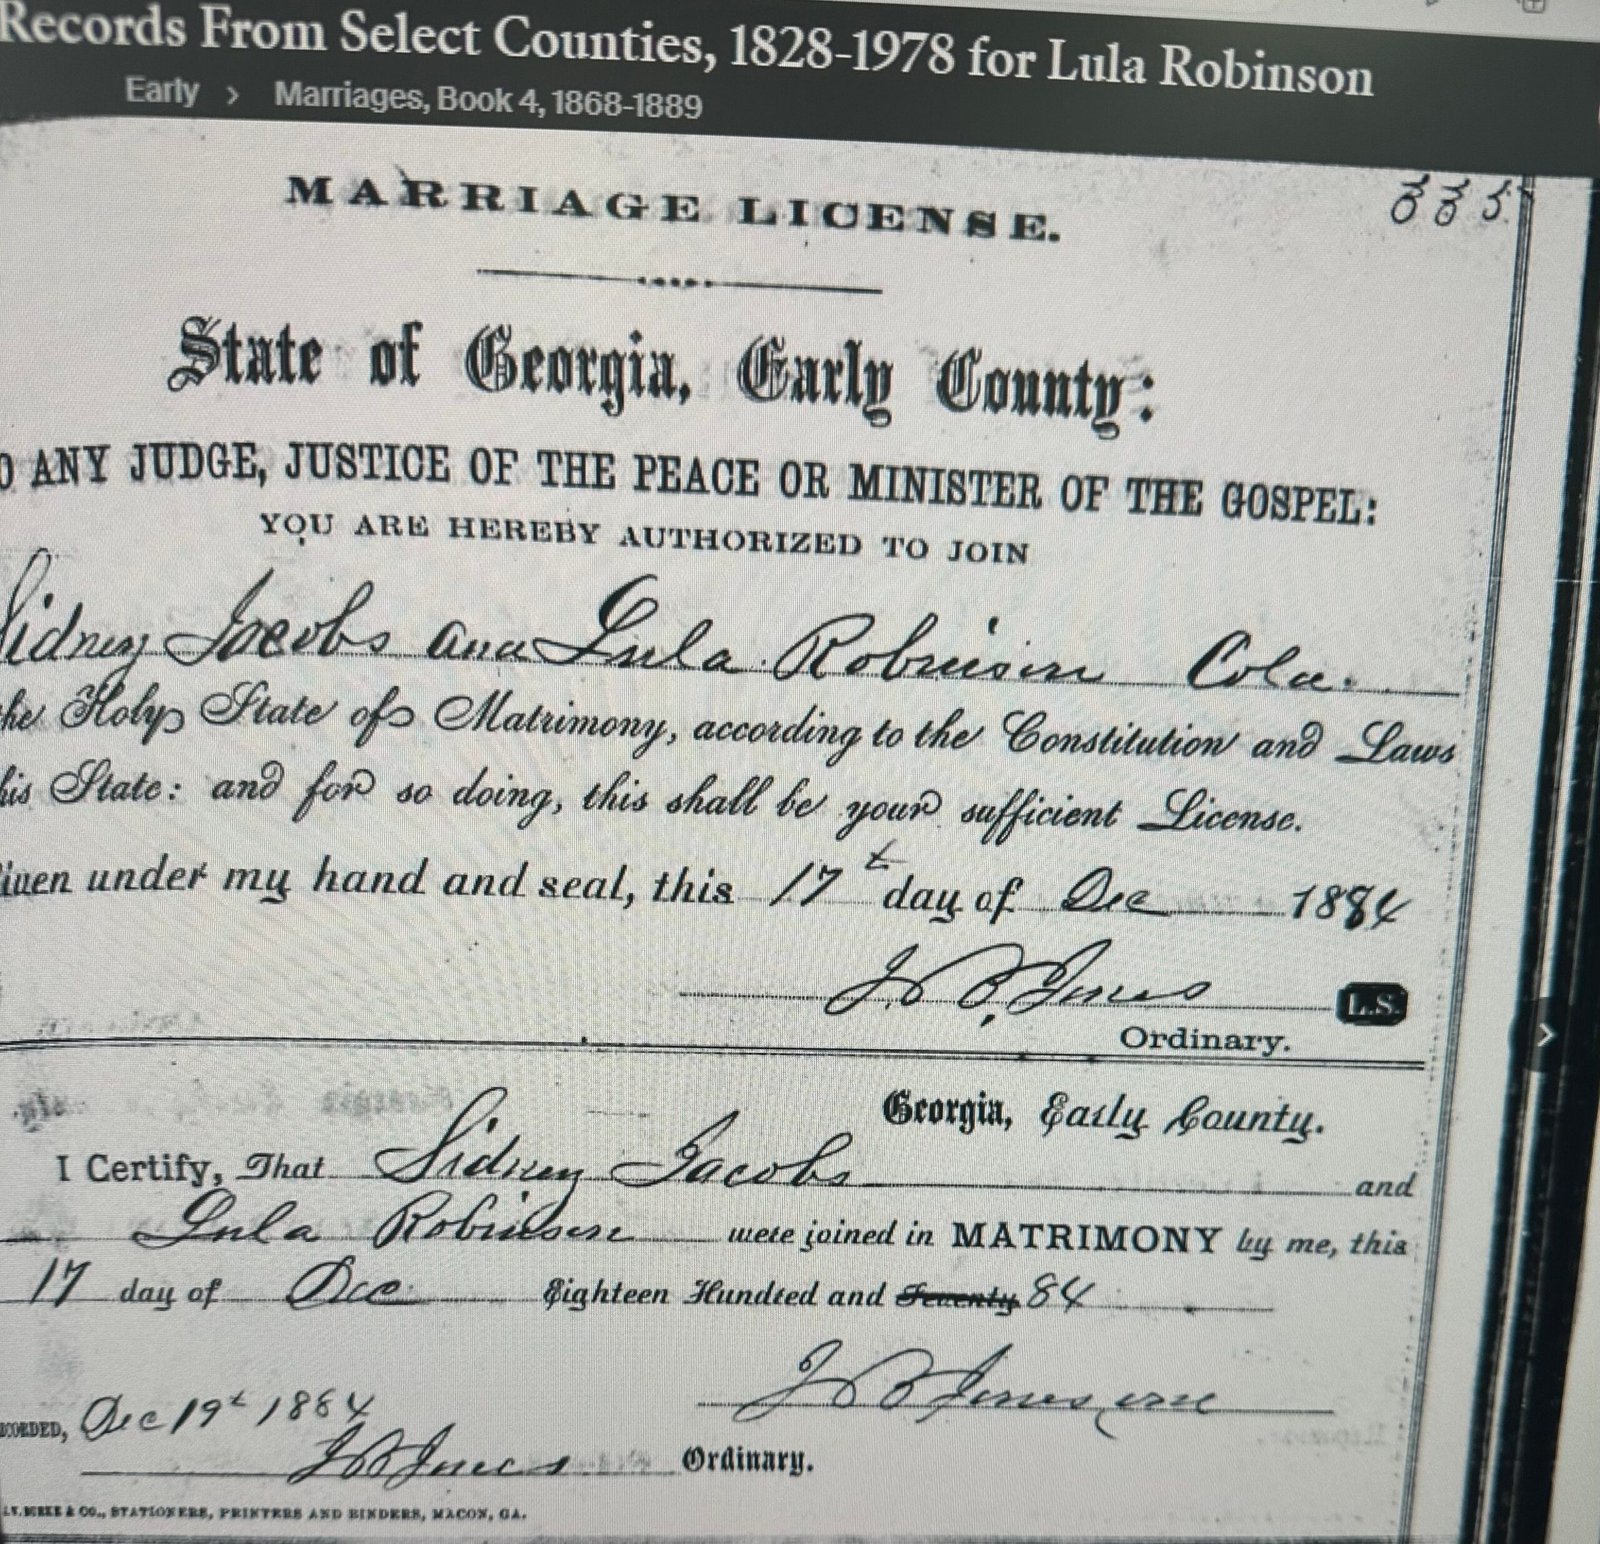 Records From Select Counties, 1828-1978 for Lula Robinson
Early > Marriages, Book 4, 1868-1889
335
MARRIAGE LICENSE.
State of Georgia, Early County:
O ANY JUDGE, JUSTICE OF THE PEACE OR MINISTER OF THE GOSPEL:
YOU ARE HEREBY AUTHORIZED TO JOIN
Sidney Jacobs and Lula Robinson Col.
the Holy State of Matrimony, according to the Constitution and Laws
his State: and for so doing, this shall be your sufficient License.
iven under my hand and seal, this 17t day of Dec 1884
J B Jones L.S.
Ordinary.
Georgia, Early County.
I Certify, That Sidney Jacobs and
Lula Robinson were joined in MATRIMONY by me, this
17 day of Dec Eighteen Hundred and Seventy 84
J B Jones
CORDED, Dec 19t 1884
J B Jones Ordinary.
& CO., STATIONERS, PRINTERS AND BINDERS, MACON, GA.